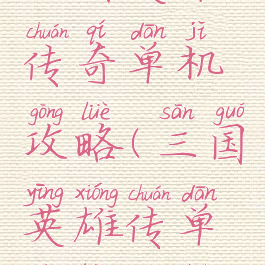 chuán qí dān jī
传奇单机
gōng lüè sān guó
攻略(三国
yīng xióng chuán dān
英雄传单